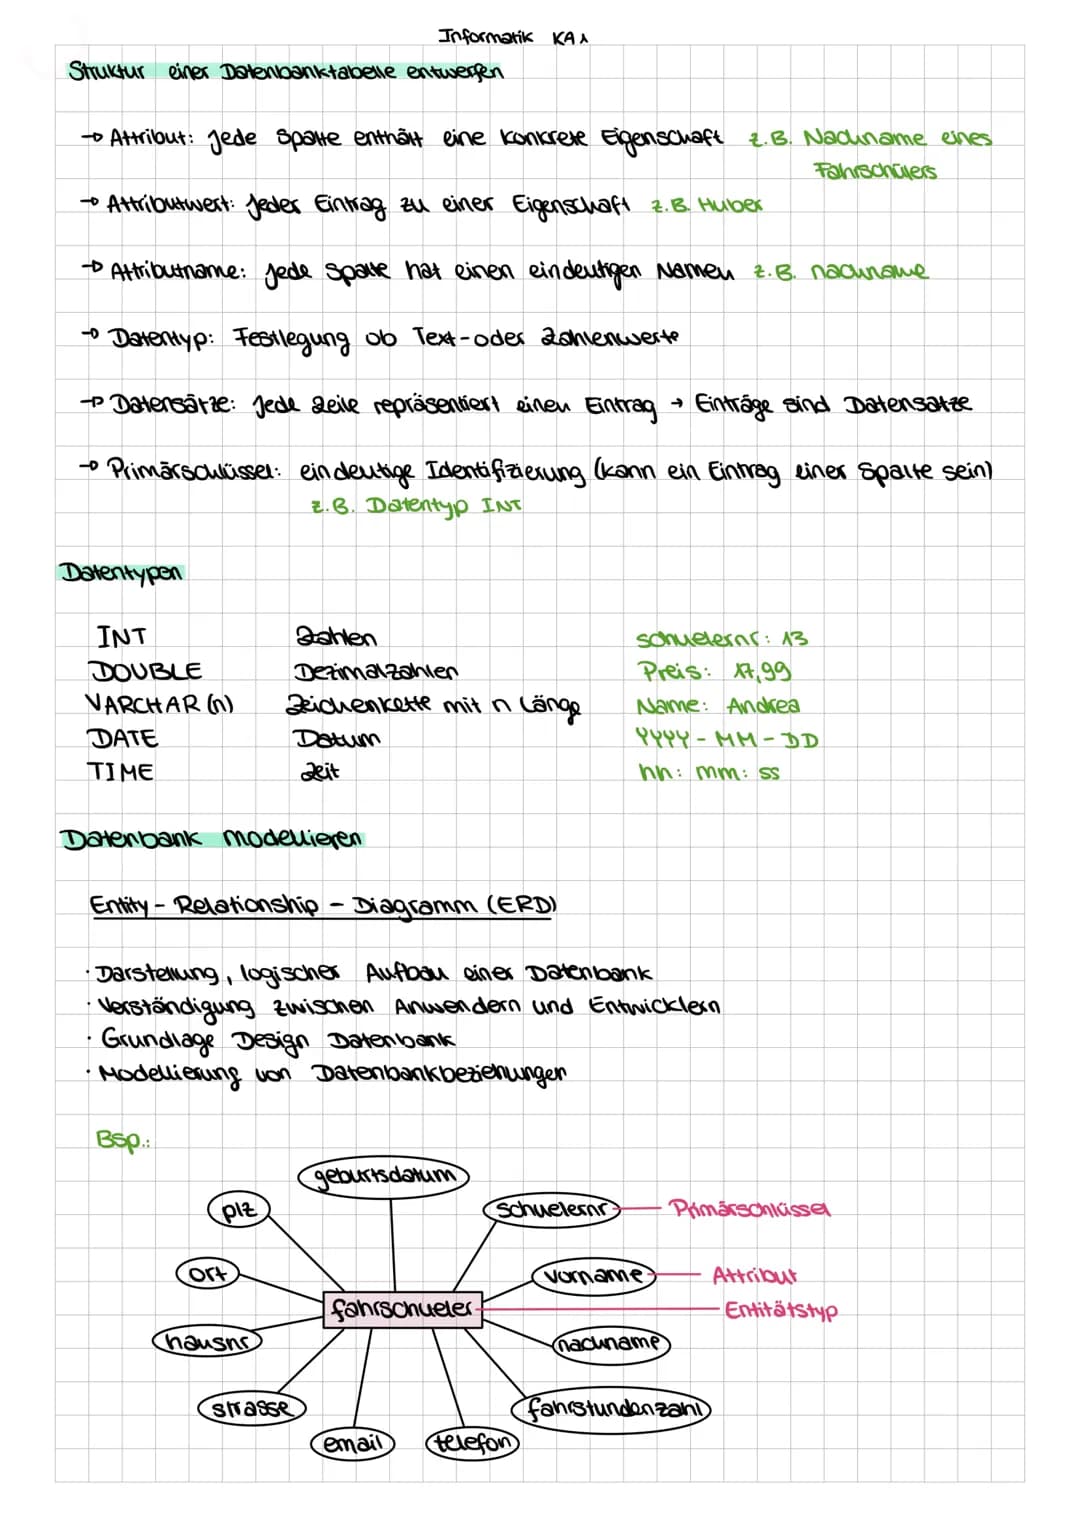 Informatik KA 1
Struktur einer Datenbanktabelle entwerfen
→ Attribut: Jede Spalte enthält eine konkrete Eigenschaft z.B. Nachname eines
Fahrschülers
→ Attributwert: Jeder Eintrag zu einer Eigenschaft z.B. Huber
→ Attributname: Jede Spalte hat einen eindeutigen Namen z.B. nachname
→ Datentyp: Festlegung ob Text- oder Zahlenwerte
→ Datensätze: Jede Zeile repräsentiert einen Eintrag → Einträge sind Datensätze
→ Primärschlüssel: eindeutige Identifizierung (kann ein Eintrag einer Spalte sein)
z.B. Datentyp INT
Datentypen
INT Zahlen schuelernr: 13
DOUBLE Dezimalzahlen Preis: 17,99
VARCHAR (n) Zeichenkette mit n Länge Name: Andrea
DATE Datum YYYY-MM-DD
TIME Zeit hh: mm: ss
Datenbank modellieren
Entity - Relationship - Diagramm (ERD)
· Darstellung, logischer Aufbau einer Datenbank
· Verständigung zwischen Anwendern und Entwicklern
· Grundlage Design Datenbank
· Modellierung von Datenbankbeziehungen
Bsp.:
geburtsdatum
plz
schuelernr
Primärschlüssel
ort
vorname
Attribut
fahrschueler
Entitätstyp
hausnr
nachname
strasse
fahrstundenzahl
email
telefon